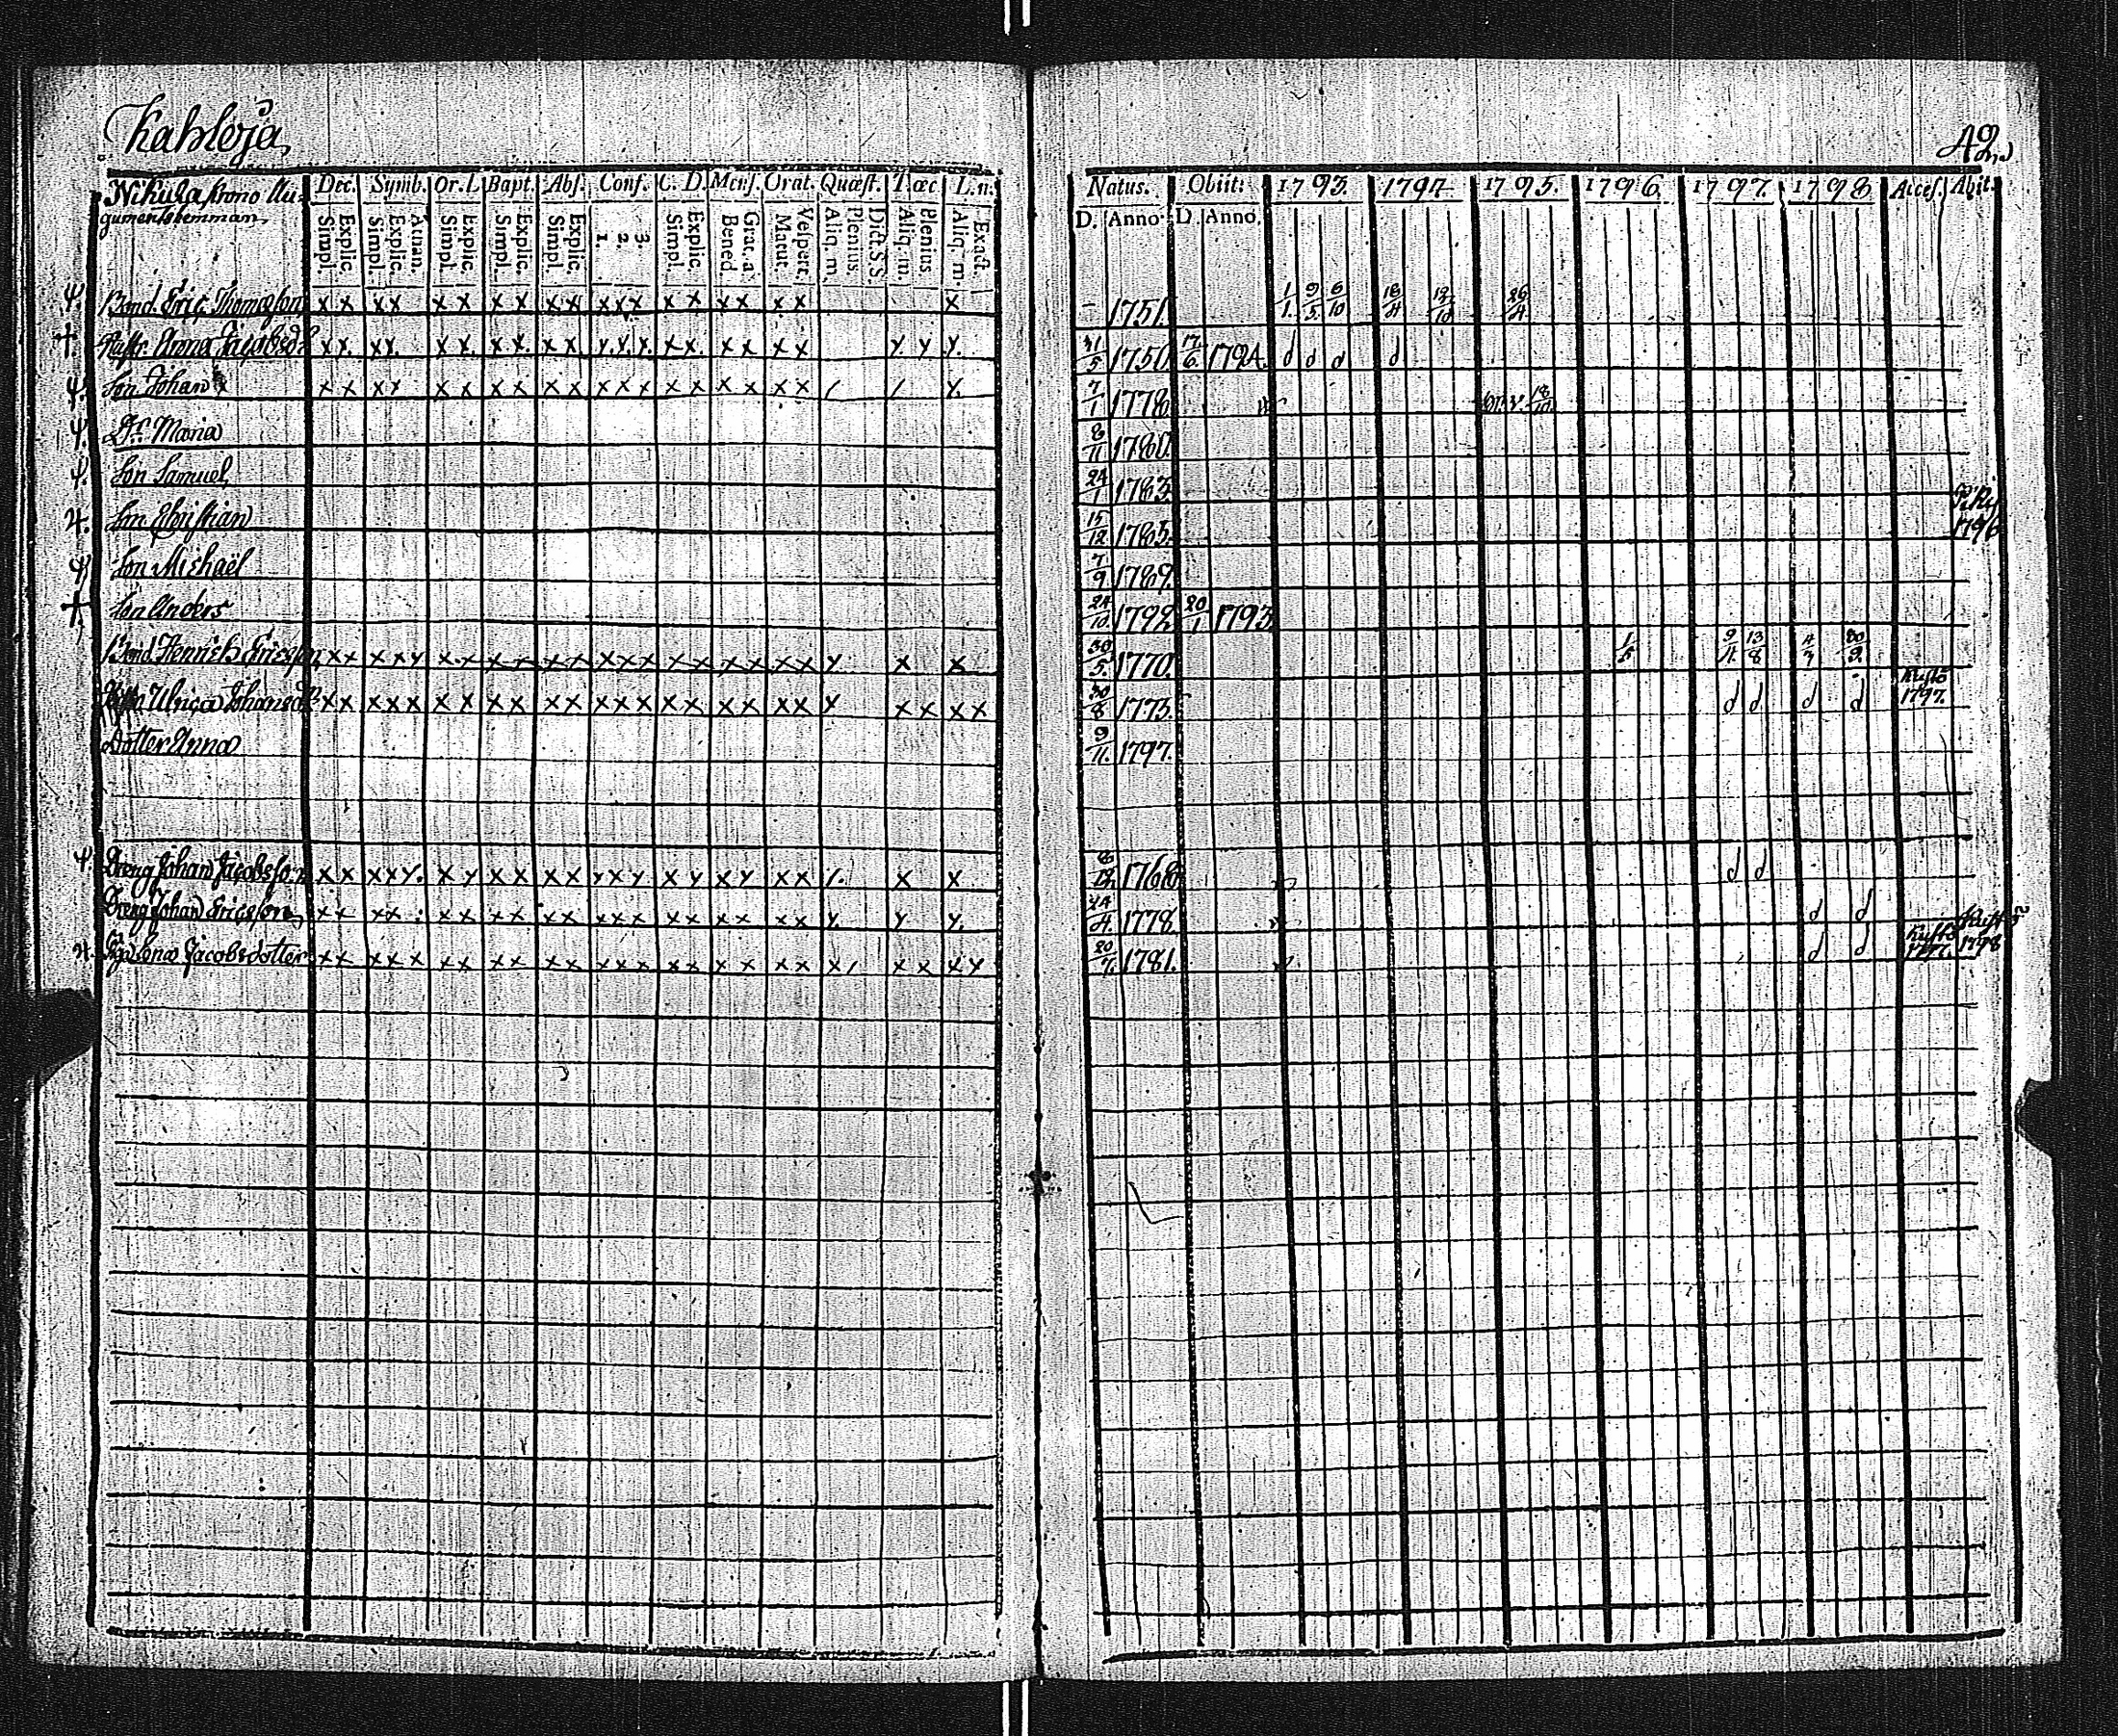 Kahloja
42.
Nikula krono Au-
gumentshemman.
Dec. Symb. Or. D. Bapt. Abs. Conf. C. D. Mens. Orat. Quæst. T. œc L. n.
Simpl. Explic. Simpl. Explic. Athan. Simpl. Explic. Simpl. Explic. Simpl. Explic. 1. 2. 3. Simpl. Explic. Bened. Grat. a. Matut. Vespert. Aliq. m. Plenius. Dict. S. S. Aliq. m. Plenius. Aliq. m. Exact.
Natus. Obiit: 1793. 1794. 1795. 1796. 1797. 1798 Acces. Abit.
D. Anno D. Anno.
Bond. Eric Thomasson x x x x x x x x x x x x x x x x x x x x 1751. 1/1 9/5 6/10 18/4 12/10 26/4
Hustr. Anna Jacobsd:r x x x x x x x x x x x x x x x x x x x x x x x 31/5 1750 17/6 1794. d d d d
Son Johan x x x x x x x x x x x x x x x x x x x 7/1 1778 18/10
D:r Maria 8/11 1780.
Son Samuel 24/1 1783
Son Christian 15/12 1785. 1796
Son Michaël 7/9 1789.
Son Anders 24/10 1792 20/1 1793
Bond. Henrich Ericsson x x x x x x x x x x x x x x x x x x x x x x x x 30/5. 1770. 1/5 9/4 13/8 4/7 30/9
Ulrica Johansd:r x x x x x x x x x x x x x x x x x x x x x x x x x x 30/8 1775. d d d d 1797.
Dotter Anna 9/11. 1797.
Dreng Johan Jacobsson x x x x x x x x x x x x x x x x x x x x x x x 1768 d d
Dreng Johan Ericsson x x x x x x x x x x x x x x x x x x x x x x 24/4. 1778. d d 1798
Piga Lena Jacobsdotter x x x x x x x x x x x x x x x x x x x x x x x x x x 20/7. 1781. d d 1797.